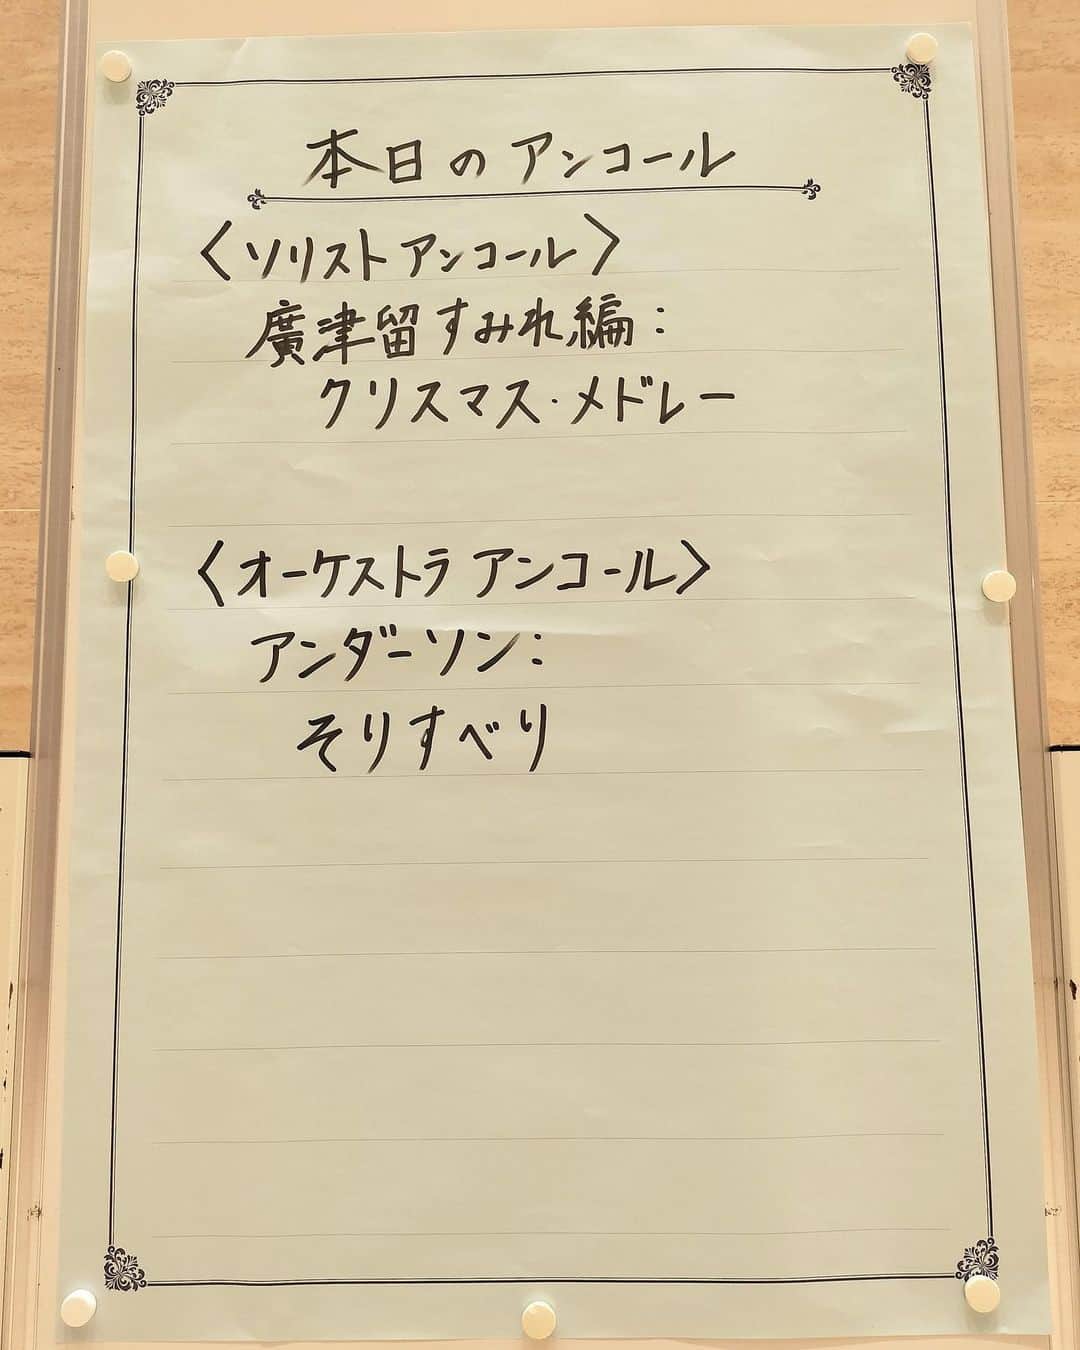 本日のアンコール
〈ソリストアンコール〉
廣津留すみれ編:
クリスマス・メドレー
〈オーケストラ アンコール〉
アンダーソン:
そりすべり